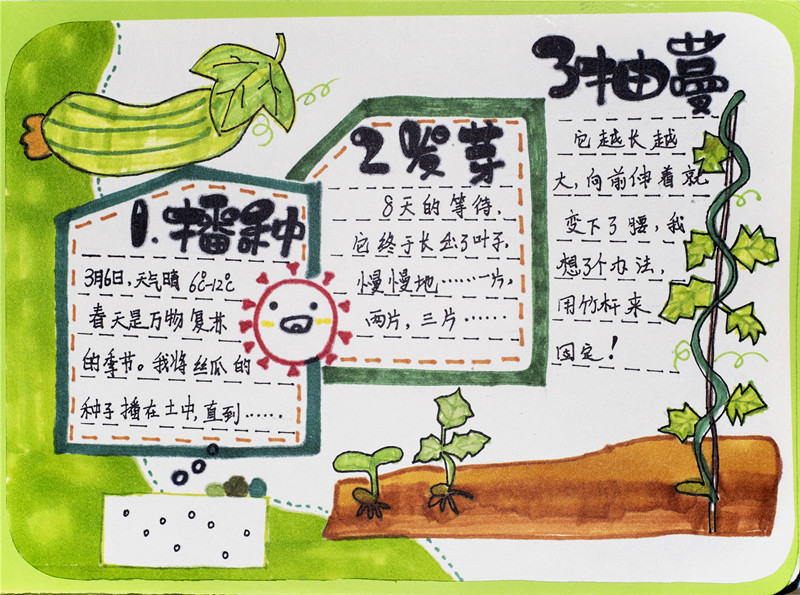 1.播种
3月6日,天气晴 6℃-12℃
春天是万物复苏
的季节。我将丝瓜的
种子播在土中,直到……
2发芽
8天的等待,
它终于长出了叶子,
慢慢地……一片,
两片,三片……
3抽蔓
它越长越
大,向前伸着就
变下了腰,我
想了个办法,
用竹杆来
固定!